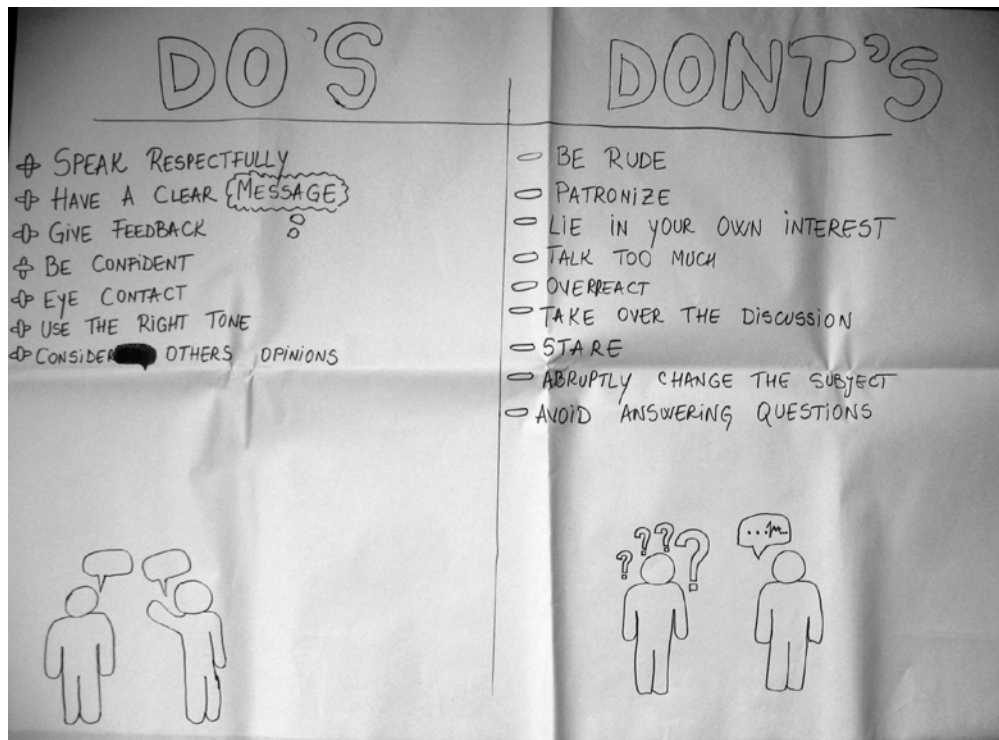 DO'S
SPEAK RESPECTFULLY
HAVE A CLEAR MESSAGE
GIVE FEEDBACK
BE CONFIDENT
EYE CONTACT
USE THE RIGHT TONE
CONSIDER OTHERS OPINIONS
DONT'S
BE RUDE
PATRONIZE
LIE IN YOUR OWN INTEREST
TALK TOO MUCH
OVERREACT
TAKE OVER THE DISCUSSION
STARE
ABRUPTLY CHANGE THE SUBJECT
AVOID ANSWERING QUESTIONS
? ? ? ?